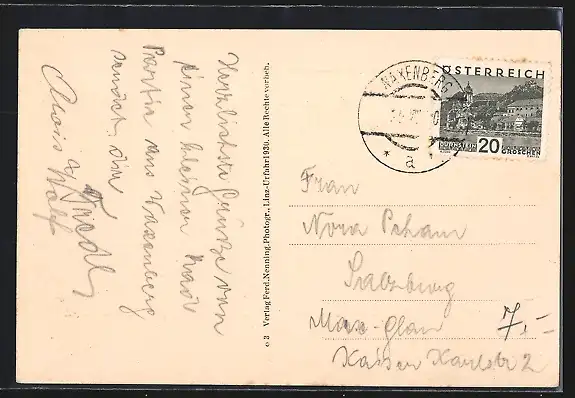 Herzlichste Grüße von
einer kleinen Rad
Partie aus Waxenberg
sendet dir
Alois u. Friedl
Wolf
o 3 Verlag Ferd. Nenning, Photogr., Linz-Urfahr 1930. Alle Rechte vorbeh.
WAXENBERG
* a
ÖSTERREICH
DÜRNSTEIN
20
GROSCHEN
Frau
Nora
Salzburg
Max-glan
7,-
Kaiser Karlstr 2